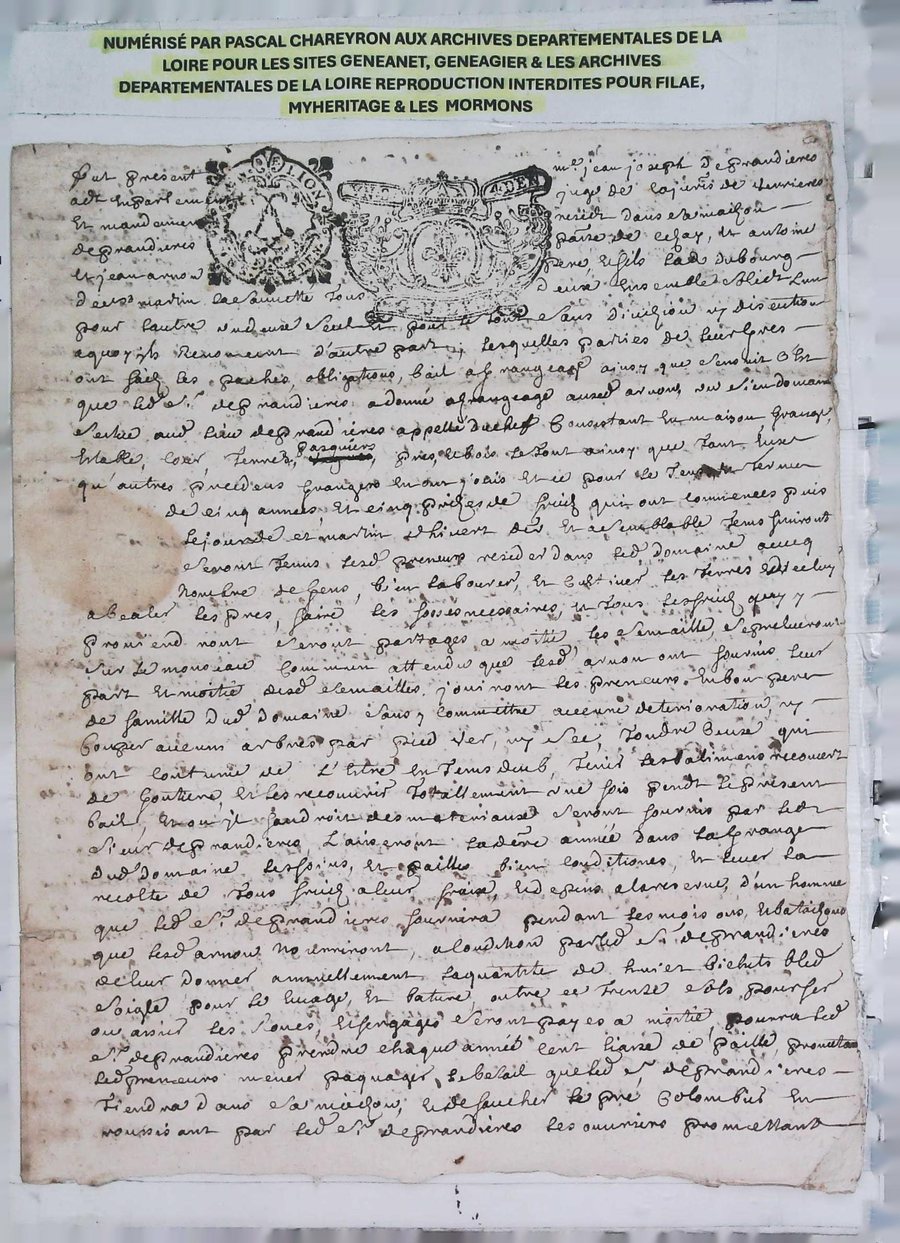 NUMÉRISÉ PAR PASCAL CHAREYRON AUX ARCHIVES DEPARTEMENTALES DE LA
LOIRE POUR LES SITES GENEANET, GENEAGIER & LES ARCHIVES
DEPARTEMENTALES DE LA LOIRE REPRODUCTION INTERDITES POUR FILAE,
MYHERITAGE & LES MORMONS
fut present me jean joseph Degrandieres
juge de la de verrieres
Et mandamen residt dans sa maison
degrandieres de et antoine
Et jean arnou pere, et fils dubourg
martin tous deux ensemble Lun
pour lautre un deux seul et pour le tout sans division ny discution
aquoy ils Renoncent d'autre part, lesquelles parties de leur gres
ont faict les paches, obligations, bail a grangeage ainsy que sensuit
que led sr. degrandieres a donné a grangeage arnou, domaine
lieu degrandieres appellé Consistant En maison, Grange,
Estable, Cour, Terres, pasquiers, pres, et bois le tout ainsy que
qu'autres grangers En ont et ce pour le Terme
de cinq années, Et cinq de fruict qui ont commencés puis
le jour de et martin dhivert der Et a semblable Tems finiront
seront Tenus lesd preneurs resider dans led domaine avecq
nombre de gens, bien labourer, Et Cultiver les Terres
les pres, faire les fosses necessaires, et tous les fruict quy y
proviendront seront partages a moitié, les semailles, se preleveront
sur le monceau Commun attendu que lesd arnou ont fournis leur
part Et moitié desd semailles, jouiront les preneurs En bon pere
de famille dud domaine sans y Commettre aucune deterioration, ny
Couper aucuns arbres par pied ver, ny sec, Tondre Ceux qui
ont Coutume de L'Estre En Tems Tenir les batimens recouvert
de Goutiere, Et les recouvrir Totallement une fois pendt le present
bail, Et ou jl faudroit des materiaux seront fournis par led
sieur degrandieres, Laisseront la dere année dans la Grange
dud domaine les foins, Et pailles bien Conditionés, Et lever la
recolte de Tous fruict a leur frais, Et depens a la reserve, d'un homme
que led sr. degrandieres fournira pendant les moissons,
que lesd arnou nourriront, a Condition par led sr. degrandieres
de leur donner annuellement la quantité de huict bichets bled
seigle pour le et bature, outre ce Trente sols pour fer
les roues, Et les gages seront payes a moitié, pourra led
sr. degrandieres prendre chaque année Cent de paille,
lesd preneurs mener paquager le betail que led sr. degrandieres
Tiendra dans sa maison, Et de faucher le pré Colombier En
nourrissant par led sr. degrandieres les ouvriers promettant